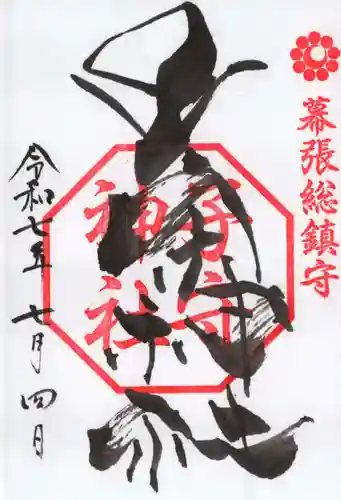 幕張総鎮守
子守神社
子守神社
令和七年 七月 四日